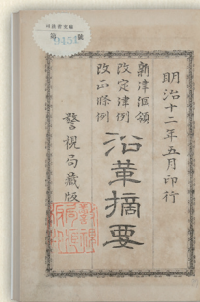 明治十二年五月印行
新律綱領
改定律例
改正條例
沿革摘要
警視局藏版